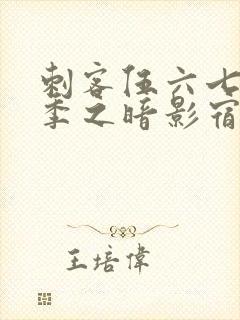 刺客伍六七
季之暗影宿
王培偉